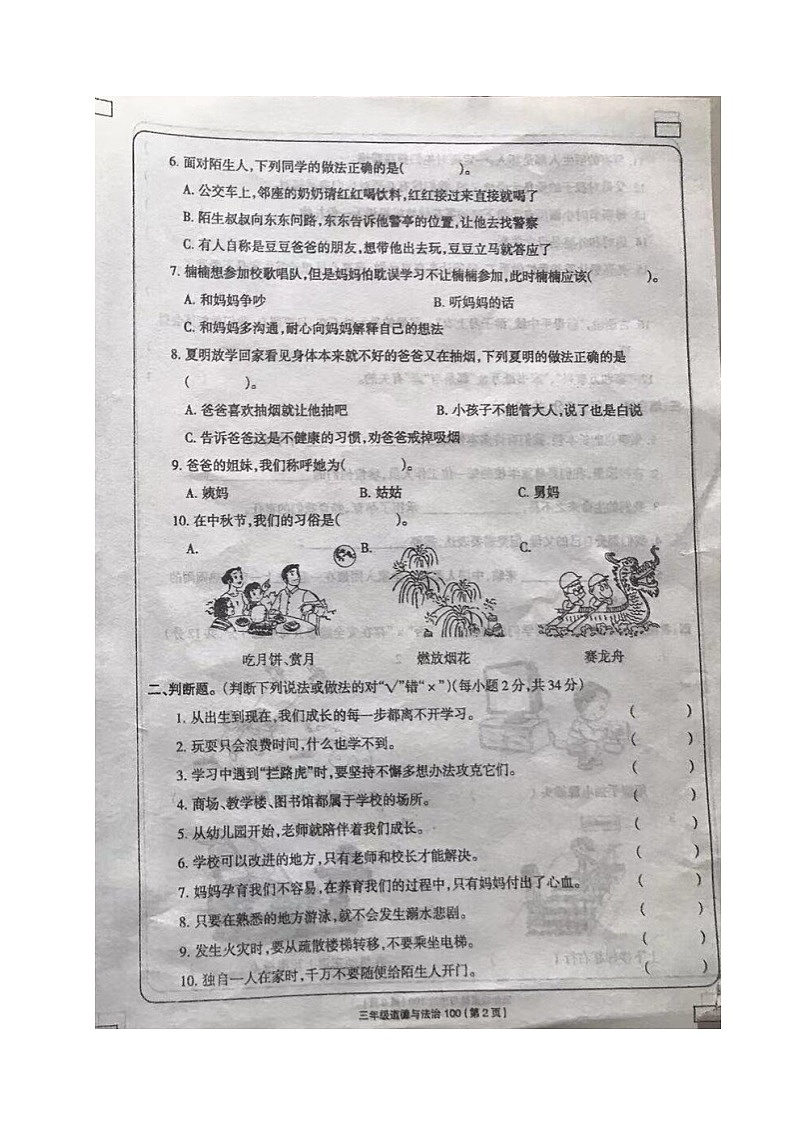 6. 面对陌生人,下列同学的做法正确的是(  )。
A. 公交车上,邻座的奶奶请红红喝饮料,红红接过来直接就喝了
B. 陌生叔叔向东东问路,东东告诉他警亭的位置,让他去找警察
C. 有人自称是豆豆爸爸的朋友,想带他出去玩,豆豆立马就答应了
7. 楠楠想参加校歌唱队,但是妈妈怕耽误学习不让楠楠参加,此时楠楠应该(  )。
A. 和妈妈争吵 B. 听妈妈的话
C. 和妈妈多沟通,耐心向妈妈解释自己的想法
8. 夏明放学回家看见身体本来就不好的爸爸又在抽烟,下列夏明的做法正确的是
(  )。
A. 爸爸喜欢抽烟就让他抽吧 B. 小孩子不能管大人,说了也是白说
C. 告诉爸爸这是不健康的习惯,劝爸爸戒掉吸烟
9. 爸爸的姐妹,我们称呼她为(  )。
A. 姨妈 B. 姑姑 C. 舅妈
10. 在中秋节,我们的习俗是(  )。
A. B. C.
吃月饼、赏月 燃放烟花 赛龙舟
二、判断题。(判断下列说法或做法的对“√”错“×”)(每小题2分,共34分)
1. 从出生到现在,我们成长的每一步都离不开学习。 (  )
2. 玩耍只会浪费时间,什么也学不到。 (  )
3. 学习中遇到“拦路虎”时,要坚持不懈多想办法攻克它们。 (  )
4. 商场、教学楼、图书馆都属于学校的场所。 (  )
5. 从幼儿园开始,老师就陪伴着我们成长。 (  )
6. 学校可以改进的地方,只有老师和校长才能解决。 (  )
7. 妈妈孕育我们不容易,在养育我们的过程中,只有妈妈付出了心血。 (  )
8. 只要在熟悉的地方游泳,就不会发生溺水悲剧。 (  )
9. 发生火灾时,要从疏散楼梯转移,不要乘坐电梯。 (  )
10. 独自一人在家时,千万不要随便给陌生人开门。 (  )
三年级道德与法治 100(第2页)